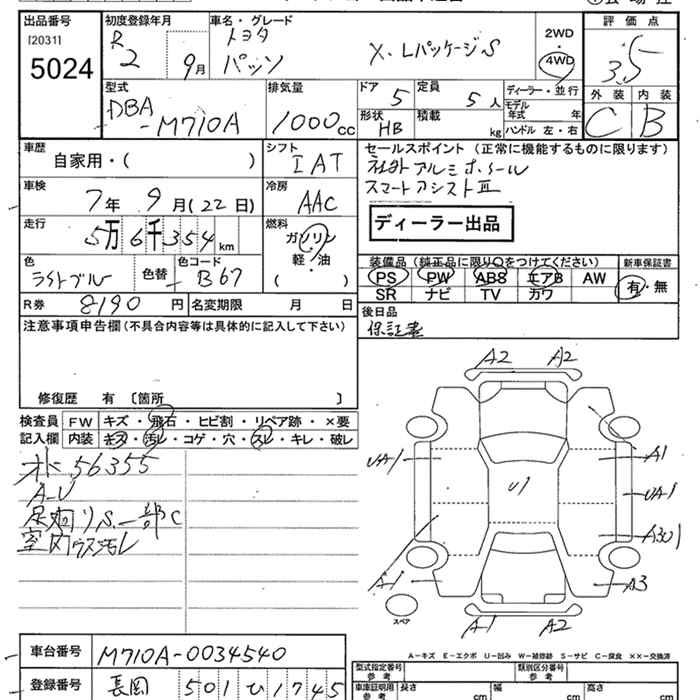 出品番号 初度登録年月 車名・グレード 評価点
[20311] R トヨタ X.Lパッケージ.S 2WD 3.5
5024 2 9月 パッソ 4WD
外装 内装
C B
型式 排気量 ドア 定員 ディーラー・並行
DBA 5 5人 モデル年式 年
-M710A 1000cc 形状 積載 ハンドル 左・右
HB kg
車歴 シフト セールスポイント(正常に機能するものに限ります)
自家用・( ) IAT 社外アルミホイール
スマートアシストⅢ
車検 冷房
7年 9月(22日) AAC ディーラー出品
走行 燃料
5万6千354km ガソリン
軽・油
( )
装備品(純正品に限り○をつけてください) 新車保証書
PS PW ABS エアB AW 有・無
SR ナビ TV カワ
色 色替 色コード
ライトブル B67
R券 8190円 名変期限 月 日
後日品
保証書
注意事項申告欄(不具合内容等は具体的に記入して下さい)
修復歴 有〔箇所 〕
検査員 FW キズ・飛石・ヒビ割・リペア跡・×要
記入欄 内装 キズ・汚レ・コゲ・穴・スレ・キレ・破レ
56355
A-U
足廻りS.一部C
室内ウス汚レ
A2 A2
UA1 A1
U1 UA1
A1 A3
スペア
A2 A2
A-キズ E-エクボ U-凹み W-補修跡 S-サビ C-腐食 ××-交換済
車台番号 M710A-0034540
登録番号 長岡 501ひ1745
型式指定番号 参考 類別区分番号 参考
車庫証明用 参考 長さ cm 幅 cm 高さ cm